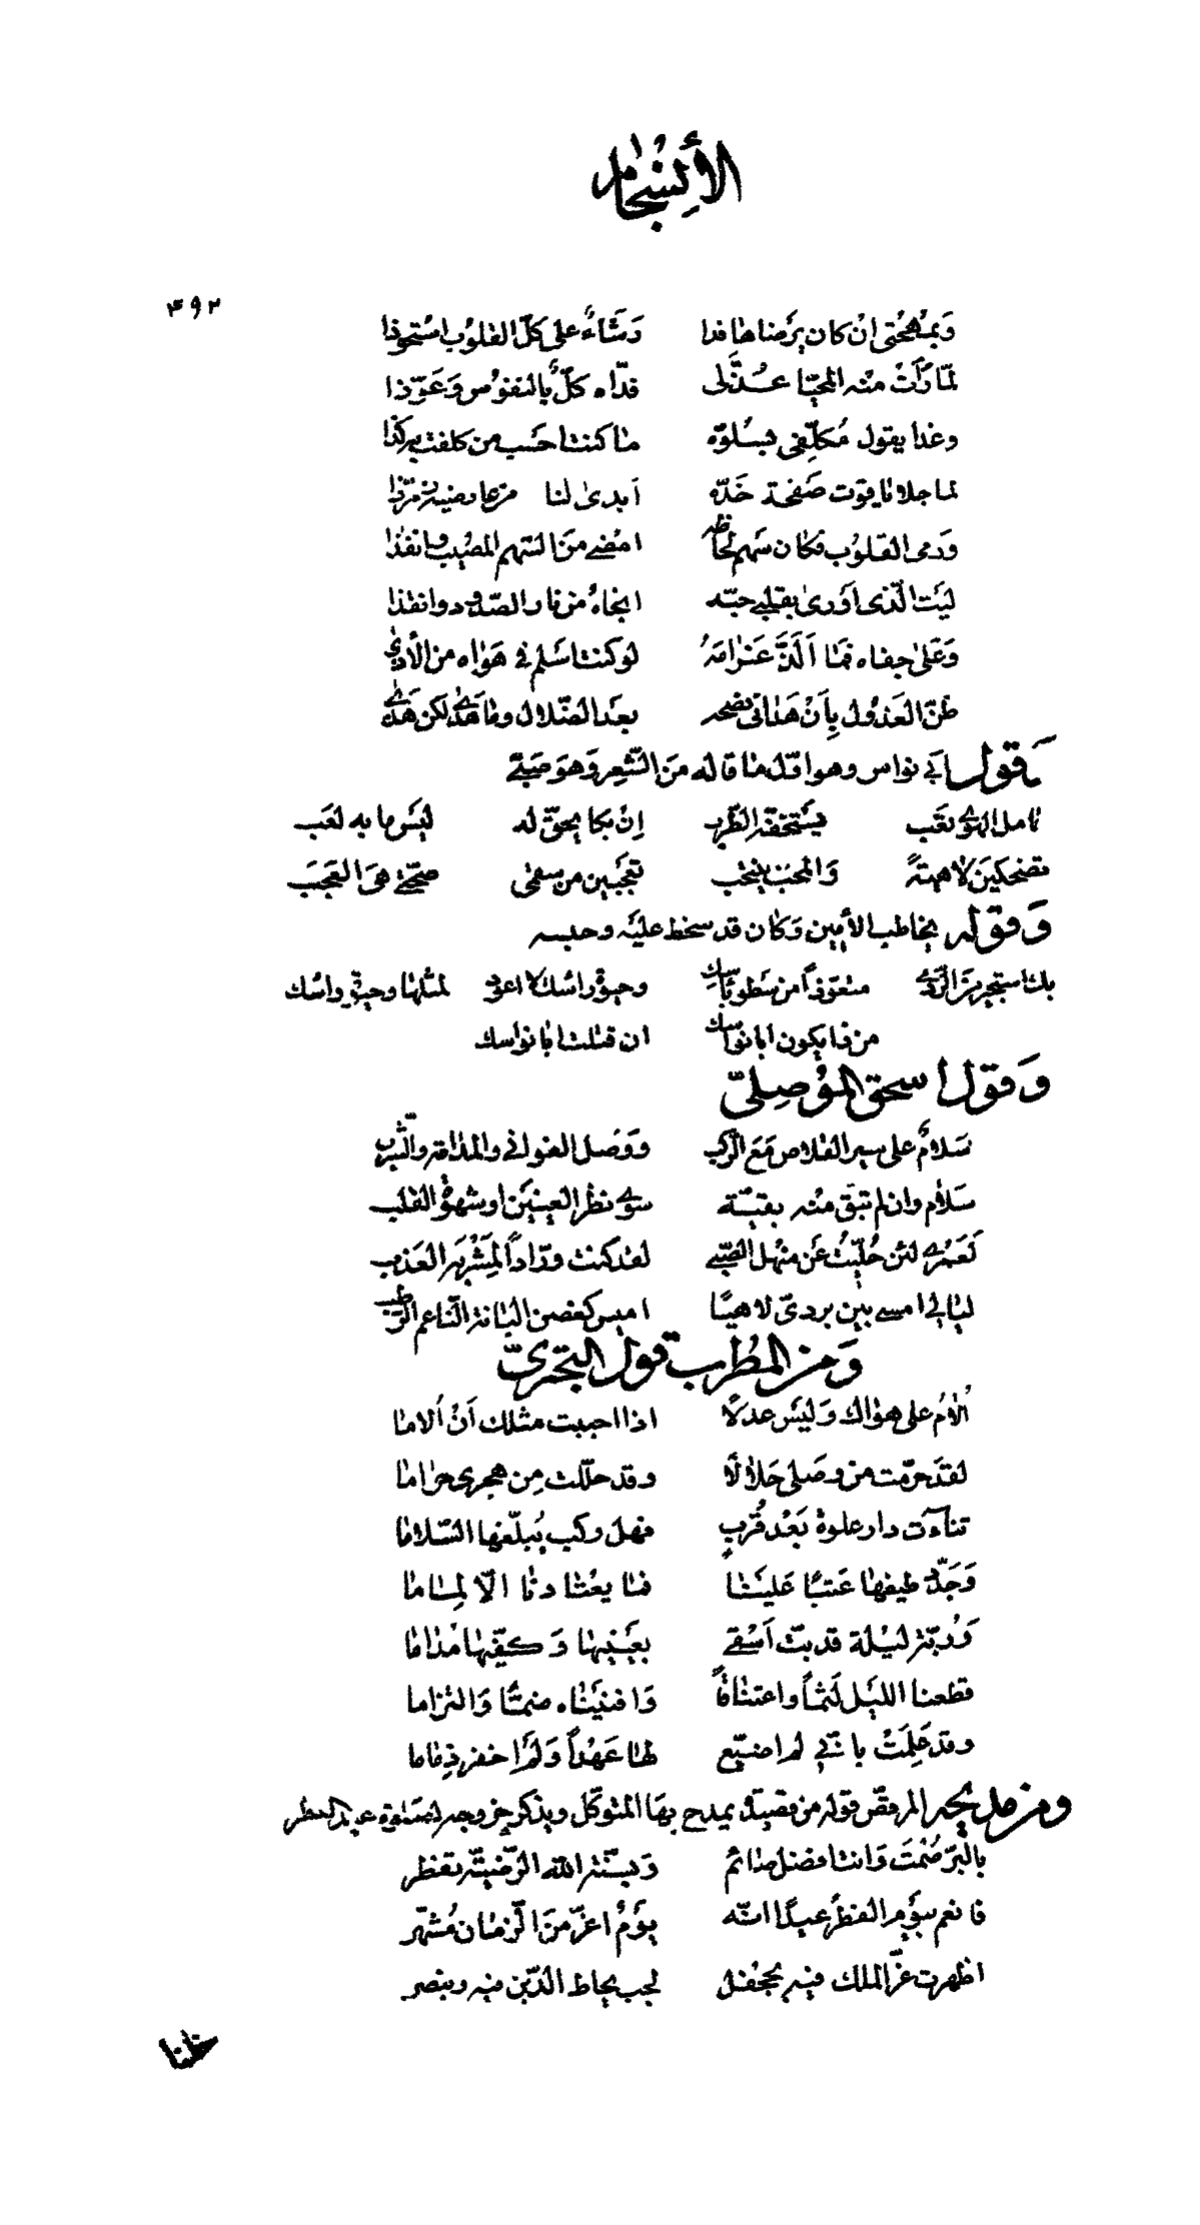 الأنسجام
٤٩٢
وَبمُهْجَتي انْ كان يَرضاها فدا وَشَاءٌ على كلّ القلوُب استحوذا
لمّا رَأتْ منه المحيّا عُذَّلى فدّاه كلٌّ بالنفوُس وَعَوّذا
وغدا يقول مُكلّفى بسُلوّه ما كنت احسَب من كلفت به كذا
لما جلا ياقوت صَفحة خَدّه اَبدىٰ لنا من عارضيه زمرّذا
وَرمى القلوُب فكان سَهم لحاظه امضى منَ السّهم المصُيب وانفذا
ليَت الّذى اَورىٰ بقلبى حبّه انجاهُ من نار الصّدود وانقذا
وَعَلىٰ جفاه فمَا اَلَذَّ غَرامَهُ لو كنت اسَلم فى هَواه من الأذىٰ
ظنّ العَذُول بِاَنْ هَدانى نصحه بعَد الضّلال وما هَدىٰ لكن هَذىٰ
وَقول ابى نواس وهو اوّل ما قاله منَ الشّعِر وَهوَ صَبىّ
حامل الهوىٰ تعَب يسَتخفّه الطّرب اِنْ بكا يحقّ له ليَس ما به لعَب
تضحكينَ لاهيةً وَالمحبّ ينتحب تعجَبين من سقمى صحّتى هىَ العَجَبَ
وَقوله يخاطب الأمين وَكان قد سخط عليَه وحبسه
بك استجير منَ الرّدىٰ متعوّذاً من سَطو باسك وحيوة راسُك لا اعود لمثلها وحيوة راسُك
من ذا يكون ابا نواسك ان قتلت ابا نواسك
وَقول اسحق المؤُصِلىّ
سَلامٌ على سير القلاص مَعَ الرّكب ووَصَل الغوانى والمدامة وَالشّرب
سَلام وان لم تبَق منُه بقيّة سوىٰ نظر العينَين او شهوة القلب
لَعَمْرى لئن حُلّئِتُ عَن منهل الصّبىٰ لقد كنت ورّاداً لِمَشْربَه العَذب
ليالى امسى بين بردىّ لاهيًا اميس كغصن البانة النّاعم الرّطب
وَمن المطُرب قول البحترىّ
اُلامُ على هواك وَليَس عدلًا اذا احببت مثلك اَنْ اُلاما
لقد حرّمت من وصَلى حَلالًا وقد حلّلت مِن هجرى حراما
تناءَت دار علوة بَعْد قُربٍ فهل ركب يُبلّغها السّلاما
وَجَدّد طيفها عَتبًا عَليَنا فما يعْتادنا الّا لماما
وَرُبّت ليَلة قد بتّ اَسُقى بعَينيها وَكفّيها مُداما
قطعنا الليَل لَثماً واعتناقاً وَافنيَناه ضمًّا وَالتزاما
وقد عَلِمَتْ بانّى لم اضيّع لها عَهْداً وَلَم اخفر ذِماما
ومن مديحه المرقص قوله من قصيدة يمدح بها المتوكّل ويذكر خروجه لصَلوة عيد الفطر
بالبرّ صُمْتَ وَانت افضل صائم وَبسنّة الله الرّضيّة تفطر
فانعم بيوَم الفطَر عيدًا انّه يوَمٌ اعزّ منَ الزّمان مُشهّر
اظهرت عزّ الملك فيه بجحَفل لجب يحاط الدّين فيه وينصر
خلنا